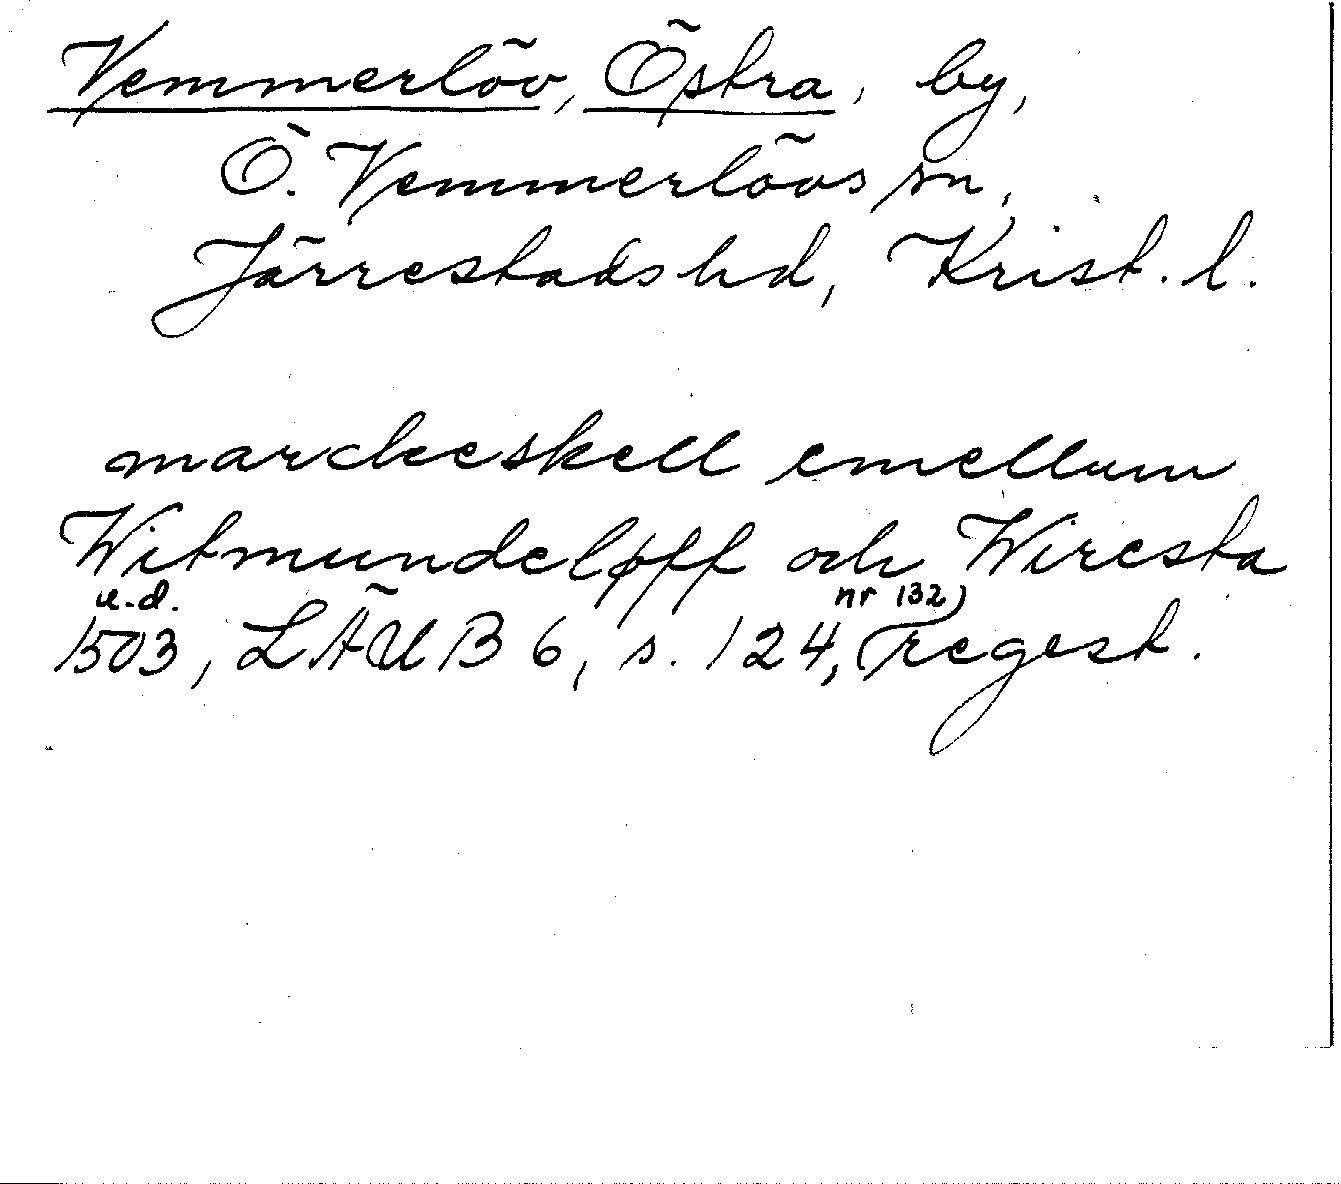 Vemmerlöv, Östra, by,
Ö. Vemmerlövs sn,
Järrestads hd, Krist. l.
marckeskell emellum
Witmundeløff och Wiresta
u.d. nr 132)
1503, LÄUB 6, s. 124, regest.